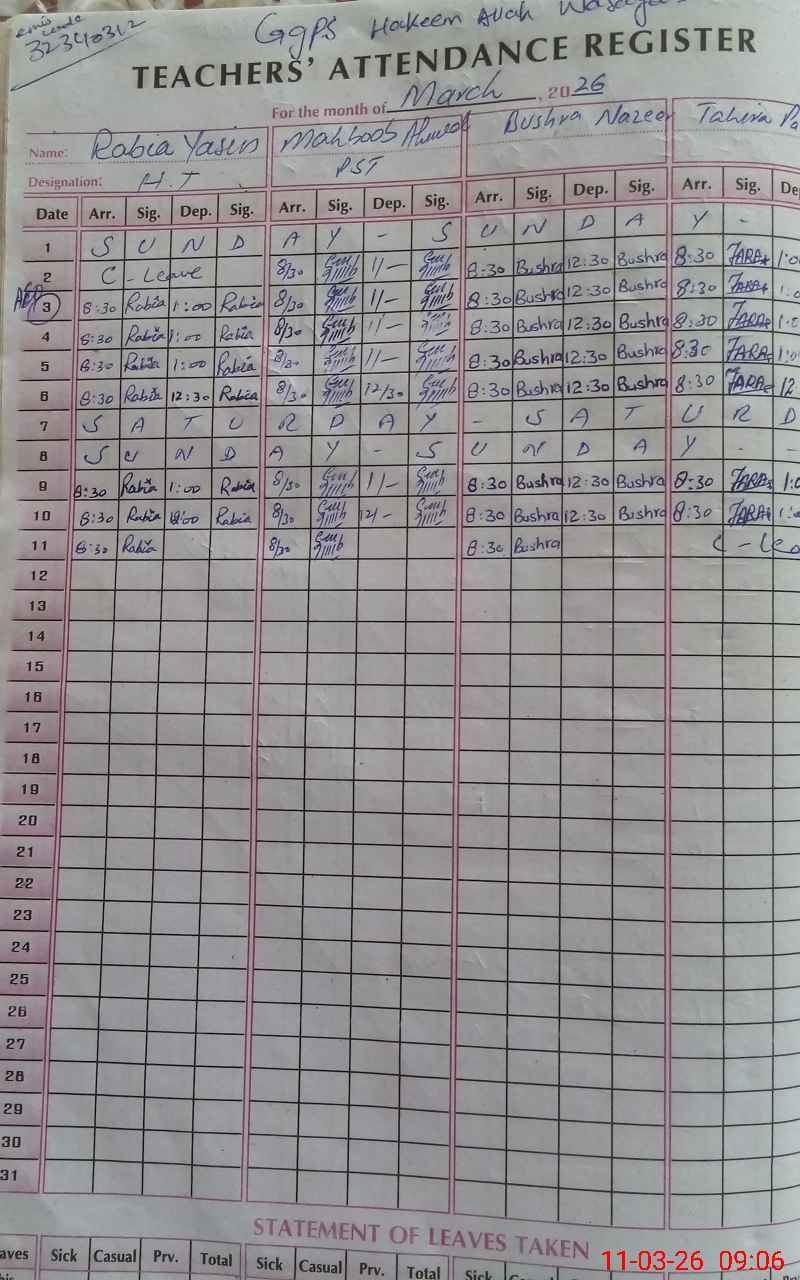 emis code
32340312
Ggps Hakeem Allah
TEACHERS' ATTENDANCE REGISTER
For the month of March , 2026
Name: Rabia Yasin Mahboob Ahmad Bushra Nazeer Tahira
Designation: H.T PST
Date Arr. Sig. Dep. Sig. Arr. Sig. Dep. Sig. Arr. Sig. Dep. Sig. Arr. Sig.
1 S U N D A Y - S U N D A Y -
2 C - Leave 8/30 1/- 8:30 Bushra 12:30 Bushra 8:30
3 8:30 Rabia 1:00 Rabia 8/30 1/- 8:30 Bushra 12:30 Bushra 8:30
4 8:30 Rabia 1:00 Rabia 8/30 1/- 8:30 Bushra 12:30 Bushra 8:30
5 8:30 Rabia 1:00 Rabia 8/30 1/- 8:30 Bushra 12:30 Bushra 8:30
6 8:30 Rabia 12:30 Rabia 8/30 12/30 8:30 Bushra 12:30 Bushra 8:30 12
7 S A T U R D A Y - S A T U R D
8 S U N D A Y - S U N D A Y - -
9 8:30 Rabia 1:00 Rabia 8/30 1/- 8:30 Bushra 12:30 Bushra 8:30
10 8:30 Rabia Rabia 8/30 12/- 8:30 Bushra 12:30 Bushra 8:30
11 8:30 Rabia 8/30 8:30 Bushra C - Lea
12
13
14
15
16
17
18
19
20
21
22
23
24
25
26
27
28
29
30
31
STATEMENT OF LEAVES TAKEN
aves Sick Casual Prv. Total Sick Casual Prv. Total Sick
11-03-26 09:06